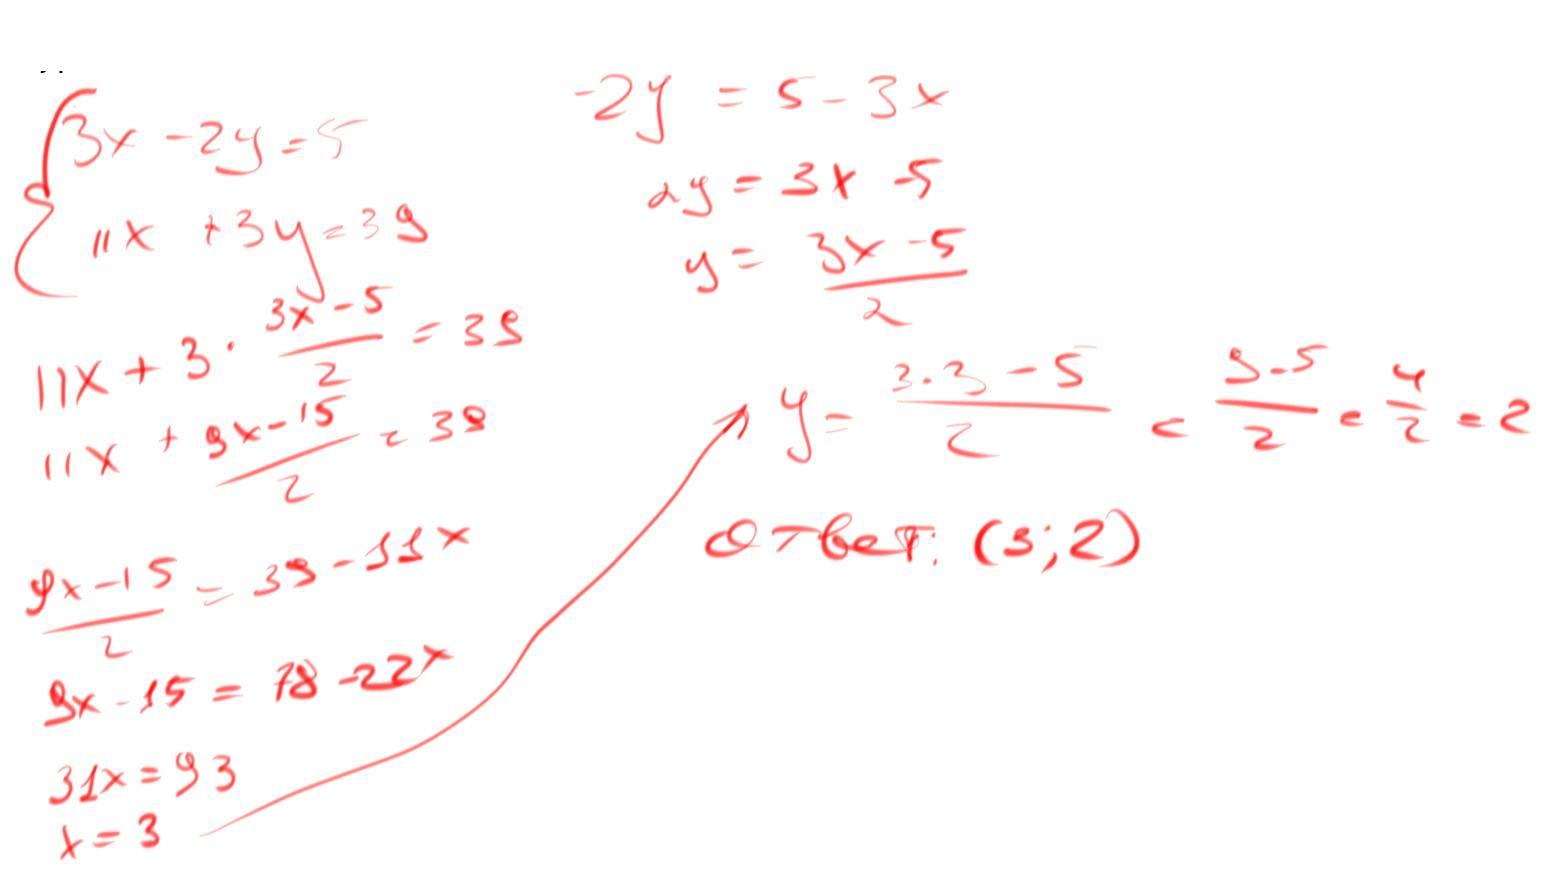 3x - 2y = 5
11x + 3y = 39
11x + 3 · (3x - 5)/2 = 39
11x + (9x - 15)/2 = 39
(9x - 15)/2 = 39 - 11x
9x - 15 = 78 - 22x
31x = 93
x = 3
-2y = 5 - 3x
2y = 3x - 5
y = (3x - 5)/2
y = (3·3 - 5)/2 = (9 - 5)/2 = 4/2 = 2
Ответ: (3; 2)